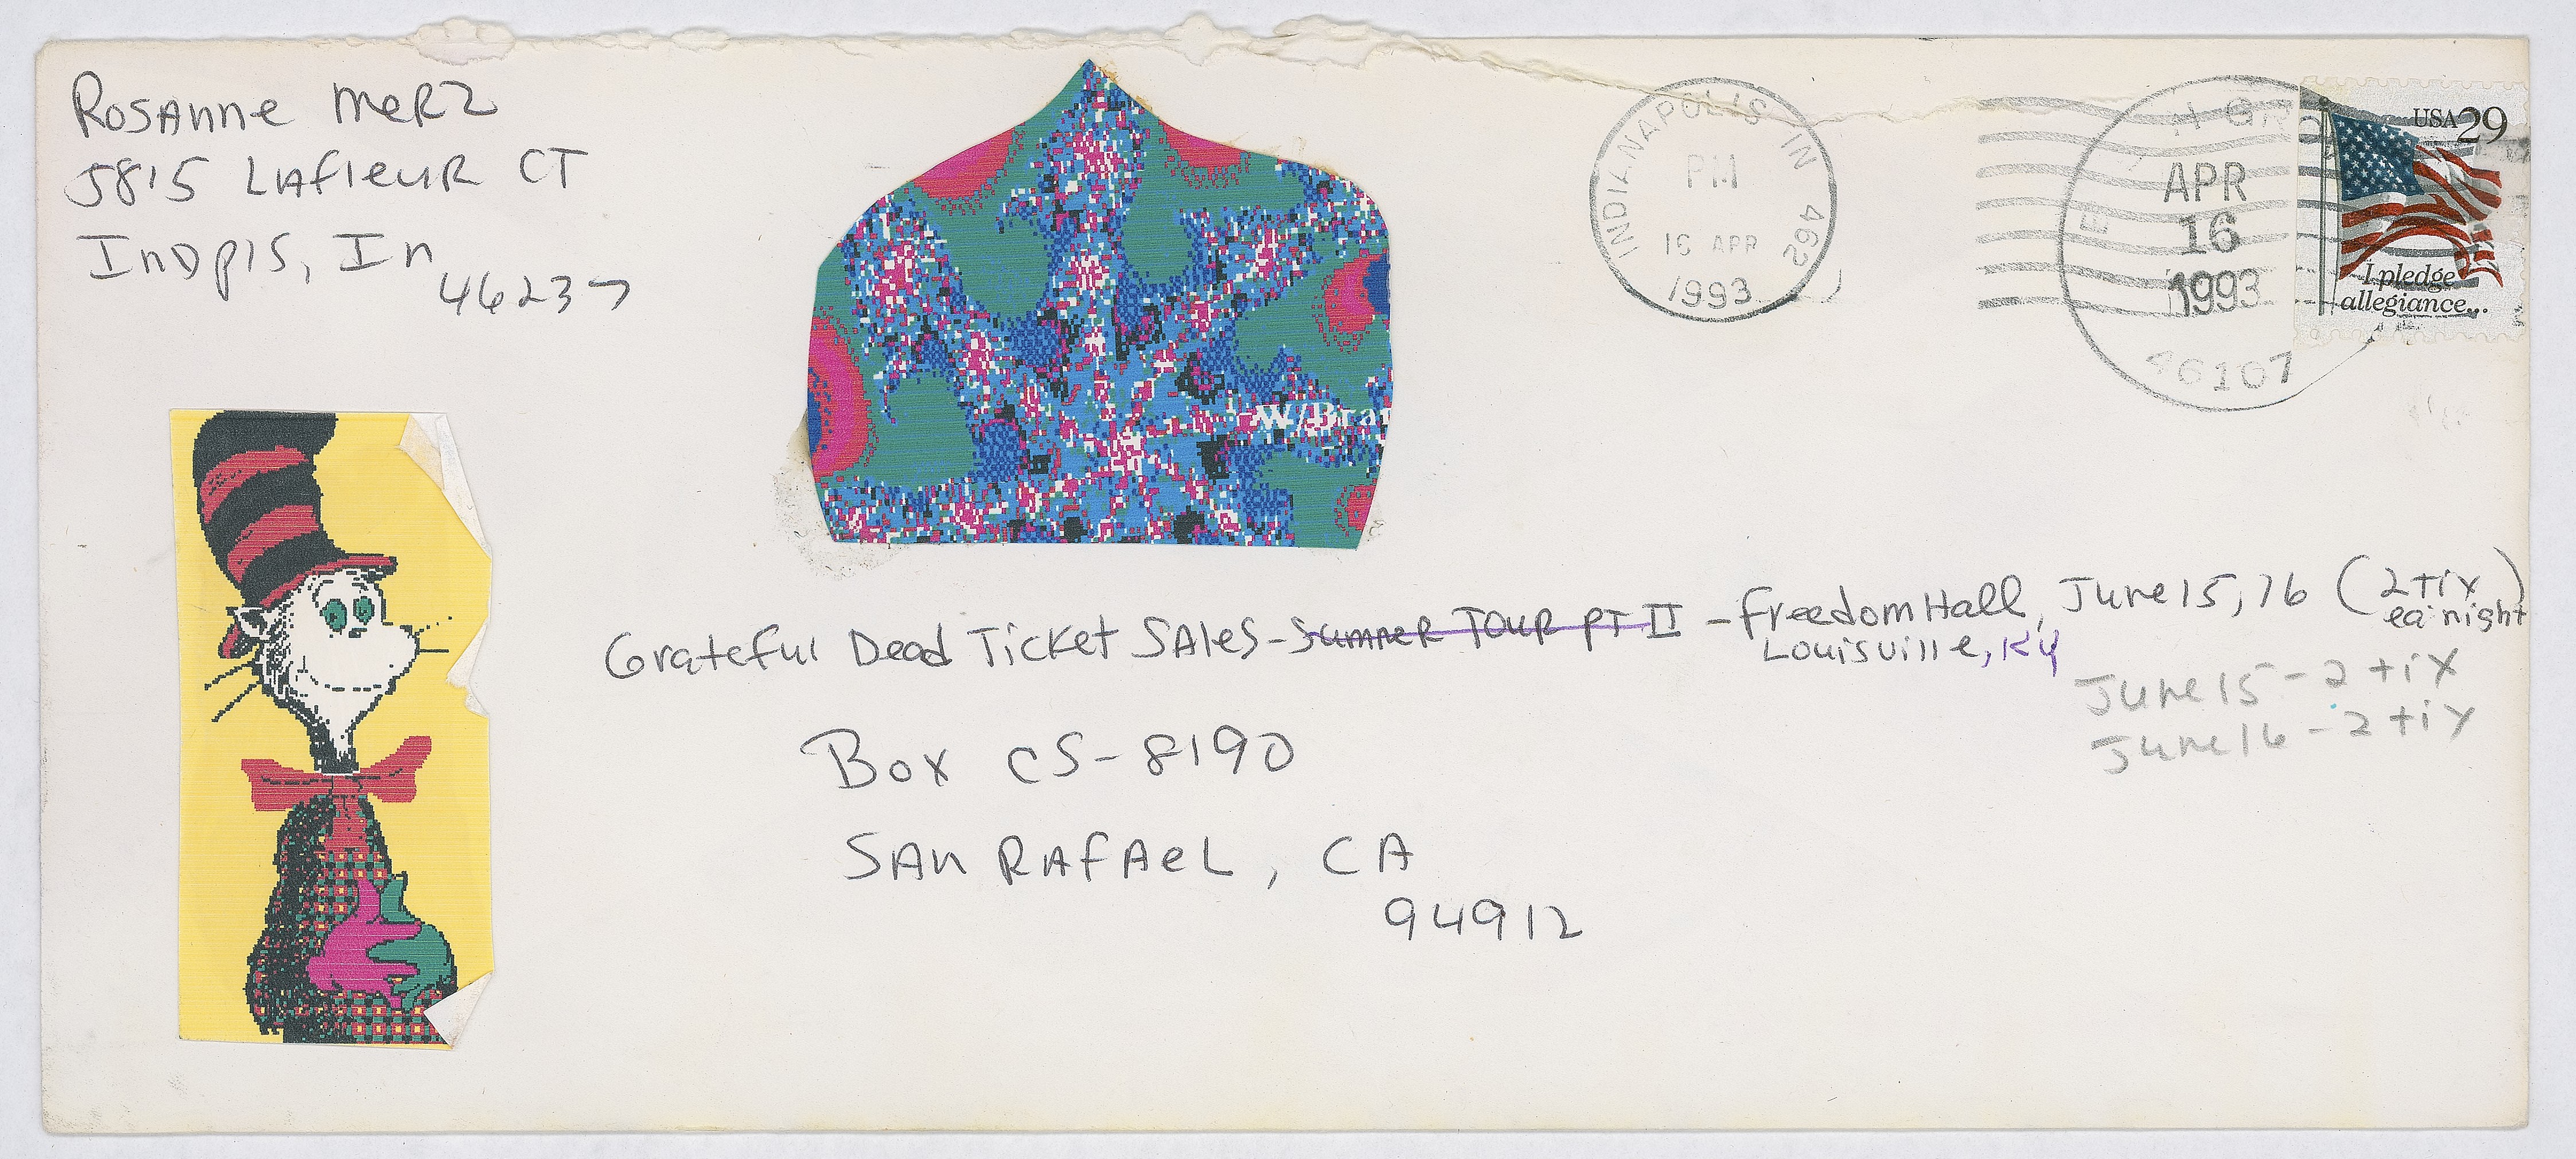 Rosanne Merz
5815 Lafleur CT
Indpls, In
46237
INDIANAPOLIS IN 462
PM
16 APR
1993
APR
16
1993
46107
USA 29
I pledge
allegiance...
W/Bra
Grateful Dead Ticket Sales - Summer Tour PT II - Freedom Hall, June 15, 16 (2 tix
ea. night)
Louisville, Ky
June 15 - 2 tix
June 16 - 2 tix
Box CS-8190
San Rafael, CA
94912